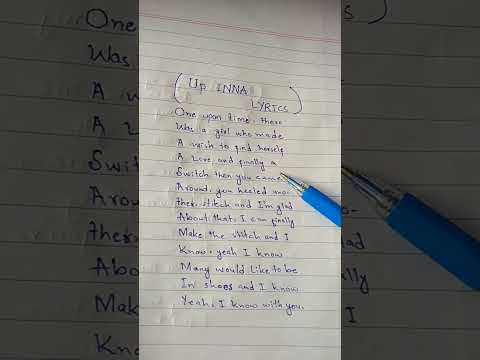 (Up INNA
LYRICS)
One upon time, there
Was a girl who made
A wish to find herself
A Love and finally a
Switch then you came
Around, you heeled ano-
ther stitch and I'm glad
About that, I can finally
Make the stitch and I
Know, yeah I know
Many would like to be
In shoes and I know
Yeah, I know with you.